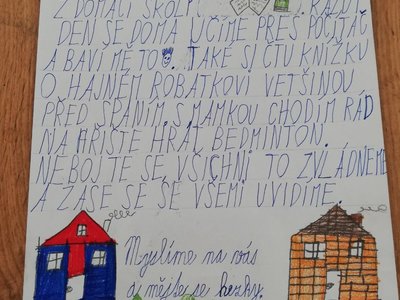 Z DOMÁCÍ ŠKOLY. KAŽDÝ
DEN SE DOMA UČÍME PŘES POČÍTAČ
A BAVÍ MĚ TO. TAKÉ SI ČTU KNÍŽKU
O HAJNÉM ROBÁTKOVI VĚTŠINOU
PŘED SPANÍM. S MAMKOU CHODÍM RÁD
NA HŘIŠTĚ HRÁT BEDMINTON.
NEBOJTE SE, VŠICHNI TO ZVLÁDNEME
A ZASE SE SE VŠEMI UVIDÍME.
Myslíme na vás
a mějte se hezky.